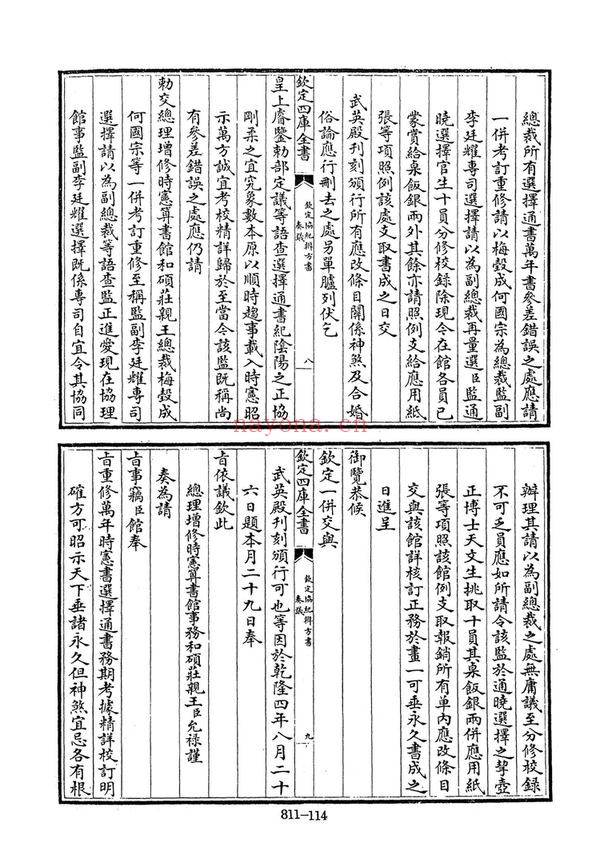 總裁所有選擇通書萬年書參差錯誤之處應請
一併考訂重修請以梅瑴成何國宗為總裁監副
李廷耀專司選擇請以為副總裁再量選臣監通
曉選擇官生十員分修校録除現今在館各員已
蒙賞給桌飯銀兩外其餘亦請照例支給應用紙
張等項照例該處支取書成之日交
武英殿刊刻頒行所有應改條目關係神煞及合婚
俗論應行刪去之處另單臚列伏乞
欽定四庫全書
欽定協紀辨方書
奏議
八
皇上睿鑒勅部定議等語查選擇通書紀陰陽之正協
剛柔之宜究象數本原以順時趨事載入時憲昭
示萬方誠宜考校精詳歸於至當今該監既稱尚
有參差錯誤之處應仍請
勅交總理增修時憲算書館和碩莊親王總裁梅瑴成
何國宗等一併考訂重修至稱監副李廷耀專司
選擇請以為副總裁等語查監正進愛現在協理
館事監副李廷耀選擇既係專司自宜令其協同
辦理其請以為副總裁之處無庸議至分修校録
不可乏員應如所請令該監於通曉選擇之挈壺
正博士天文生挑取十員其桌飯銀兩併應用紙
張等項照該館例支取報銷所有單内應改條目
交與該館詳核訂正務於畫一可垂永久書成之
日進呈
御覽恭候
欽定一併交與
欽定四庫全書
欽定協紀辨方書
奏議
九
武英殿刊刻頒行可也等因於乾隆四年八月二十
六日題本月二十九日奉
旨依議欽此
總理增修時憲算書館事務和碩莊親王臣允禄謹
奏為請
旨事竊臣館奉
旨重修萬年時憲書選擇通書務期考據精詳校訂明
確方可昭示天下垂諸永久但神煞宜忌各有根
811-114
nayona.cn